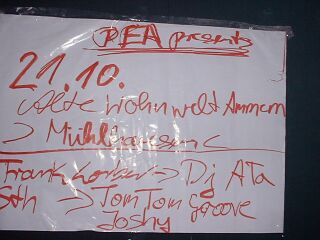 PEA presents
21.10.
alte Wohnwelt Ammern
-> Mühlhausen
Frank -> Dj ATA
Sth -> TomTom Groove
Joshy